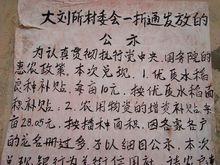 大刘所村委会一折通发放的
公示
为认真贯彻执行党中央、国务院的
惠农政策。本次兑现，1.优良水稻
良种补贴，每亩15元，按优良水稻面
积补贴。2.农用物资的增资补贴，每
亩28.05元，按播种面积。因各家各户
的花名册过多，不以细目公示。本次